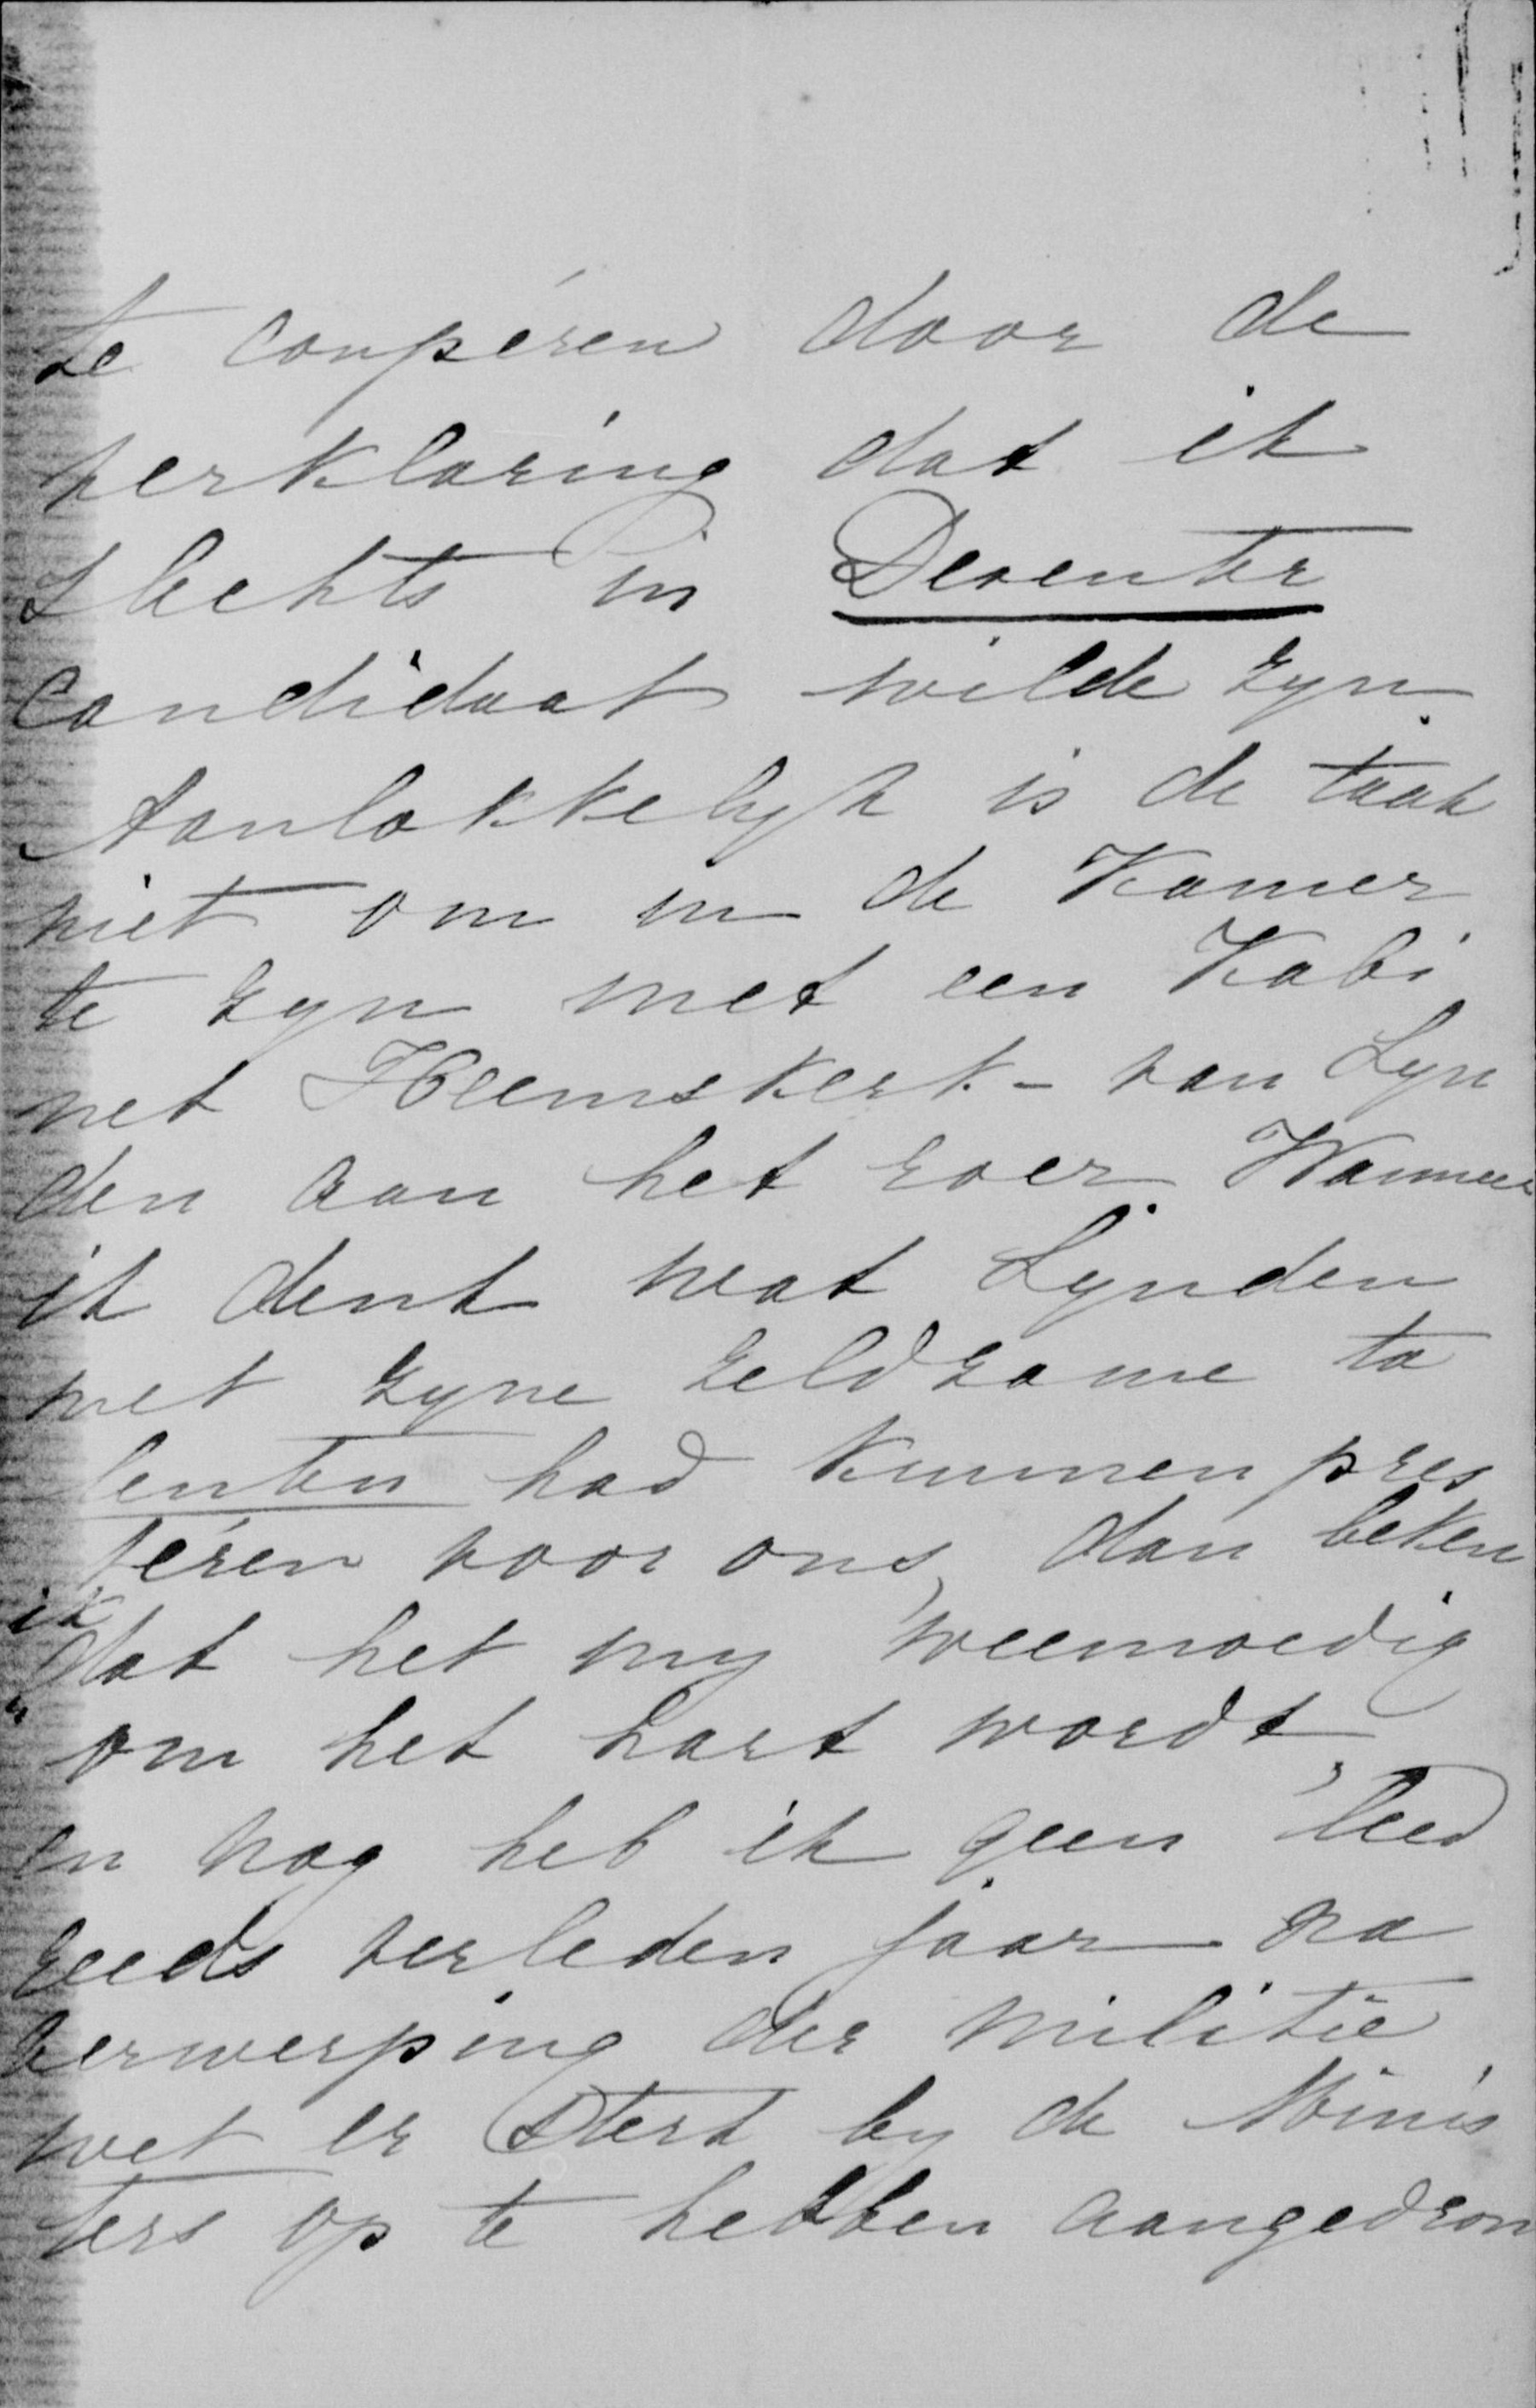 te coupéren door de
verklaring dat ik
slechts in Deventer
Candidaat wilde zyn.
Aanlokkelyk is de taak
niet om in de Kamer
te zyn met een Kabi
net Heemskerk - van Lyn
den aan het roer. Wanneer
ik denk wat Lynden
met zyne zeldzame ta
lenten had kunnen pres
téren voor ons, dan beken
ik
dat het my weemoedig
om het hart wordt,
en nog heb ik geen leed
reeds verleden jaar na
verwerping der militie
wet er sterk by de Minis
ters op te hebben aangedron